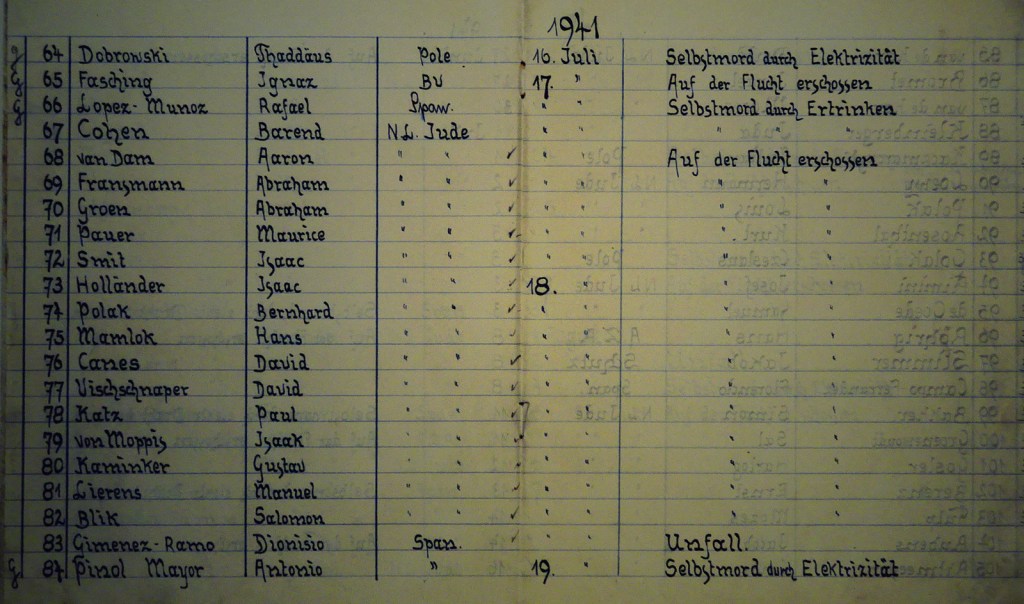 1941
g 64 Dobrowski Thaddäus Pole 16. Juli Selbstmord durch Elektrizität
g 65 Fasching Ignaz BV 17. " Auf der Flucht erschossen
g 66 Lopez-Munoz Rafael Span. " " Selbstmord durch Ertrinken
67 Cohen Barend NL. Jude " " " " "
68 van Dam Aaron " " ✓ " " Auf der Flucht erschossen
69 Fransmann Abraham " " ✓ " " " "
70 Groen Abraham " " ✓ " " " "
71 Pauer Maurice " " ✓ " " " "
72 Smit Isaac " " ✓ " " " "
73 Holländer Isaac " " 18. " " "
74 Polak Bernhard " " ✓ " " " "
75 Mamlok Hans " " ✓ " " " "
76 Canes David " " ✓ " " " "
77 Vischschnaper David " " ✓ " " " "
78 Katz Paul " " " " " "
79 von Moppis Isaak " " ✓ " " " "
80 Kaminker Gustav " " " " " "
81 Lierens Manuel " " ✓ " " " "
82 Blik Salomon " " ✓ " " " "
83 Gimenez-Ramo Dionisio Span. " " Unfall.
g 84 Pinol Mayor Antonio " 19. " Selbstmord durch Elektrizität